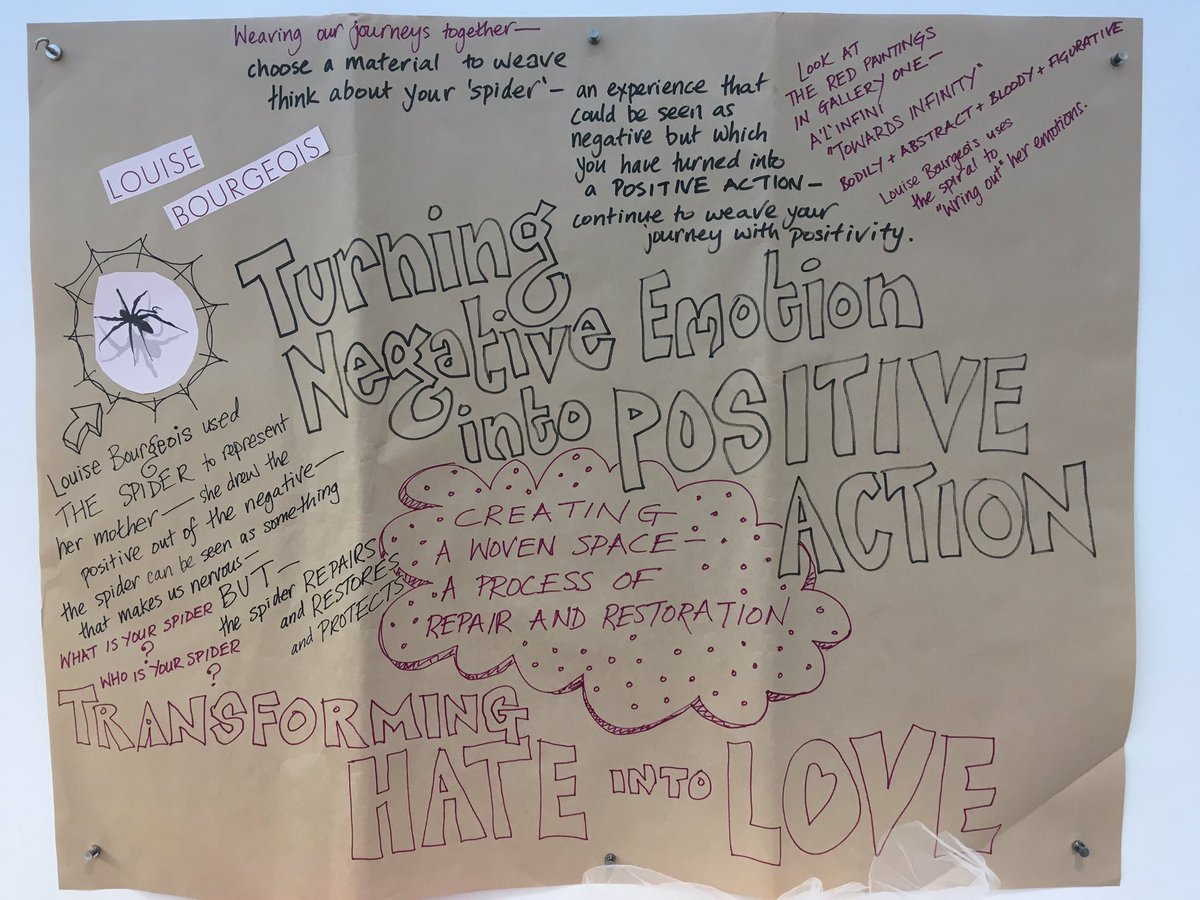 Weaving our journeys together—
choose a material to weave
think about your 'spider'—
an experience that
could be seen as
negative but which
you have turned into
a POSITIVE ACTION—
continue to weave your
journey with positivity.
LOOK AT
THE RED PAINTINGS
IN GALLERY ONE—
A'L'INFINI
"TOWARDS INFINITY"
BODILY + ABSTRACT + BLOODY + FIGURATIVE
Louise Bourgeois uses
the spiral to
"wring out" her emotions.
LOUISE
BOURGEOIS
Turning
Negative Emotion
into POSITIVE
ACTION
Louise Bourgeois used
THE SPIDER to represent
her mother— she drew the
positive out of the negative—
the spider can be seen as something
that makes us nervous—
BUT—
the spider REPAIRS
and RESTORES
and PROTECTS
WHAT IS YOUR SPIDER
?
WHO IS YOUR SPIDER
?
CREATING
A WOVEN SPACE—
A PROCESS OF
REPAIR AND RESTORATION
TRANSFORMING
HATE INTO LOVE